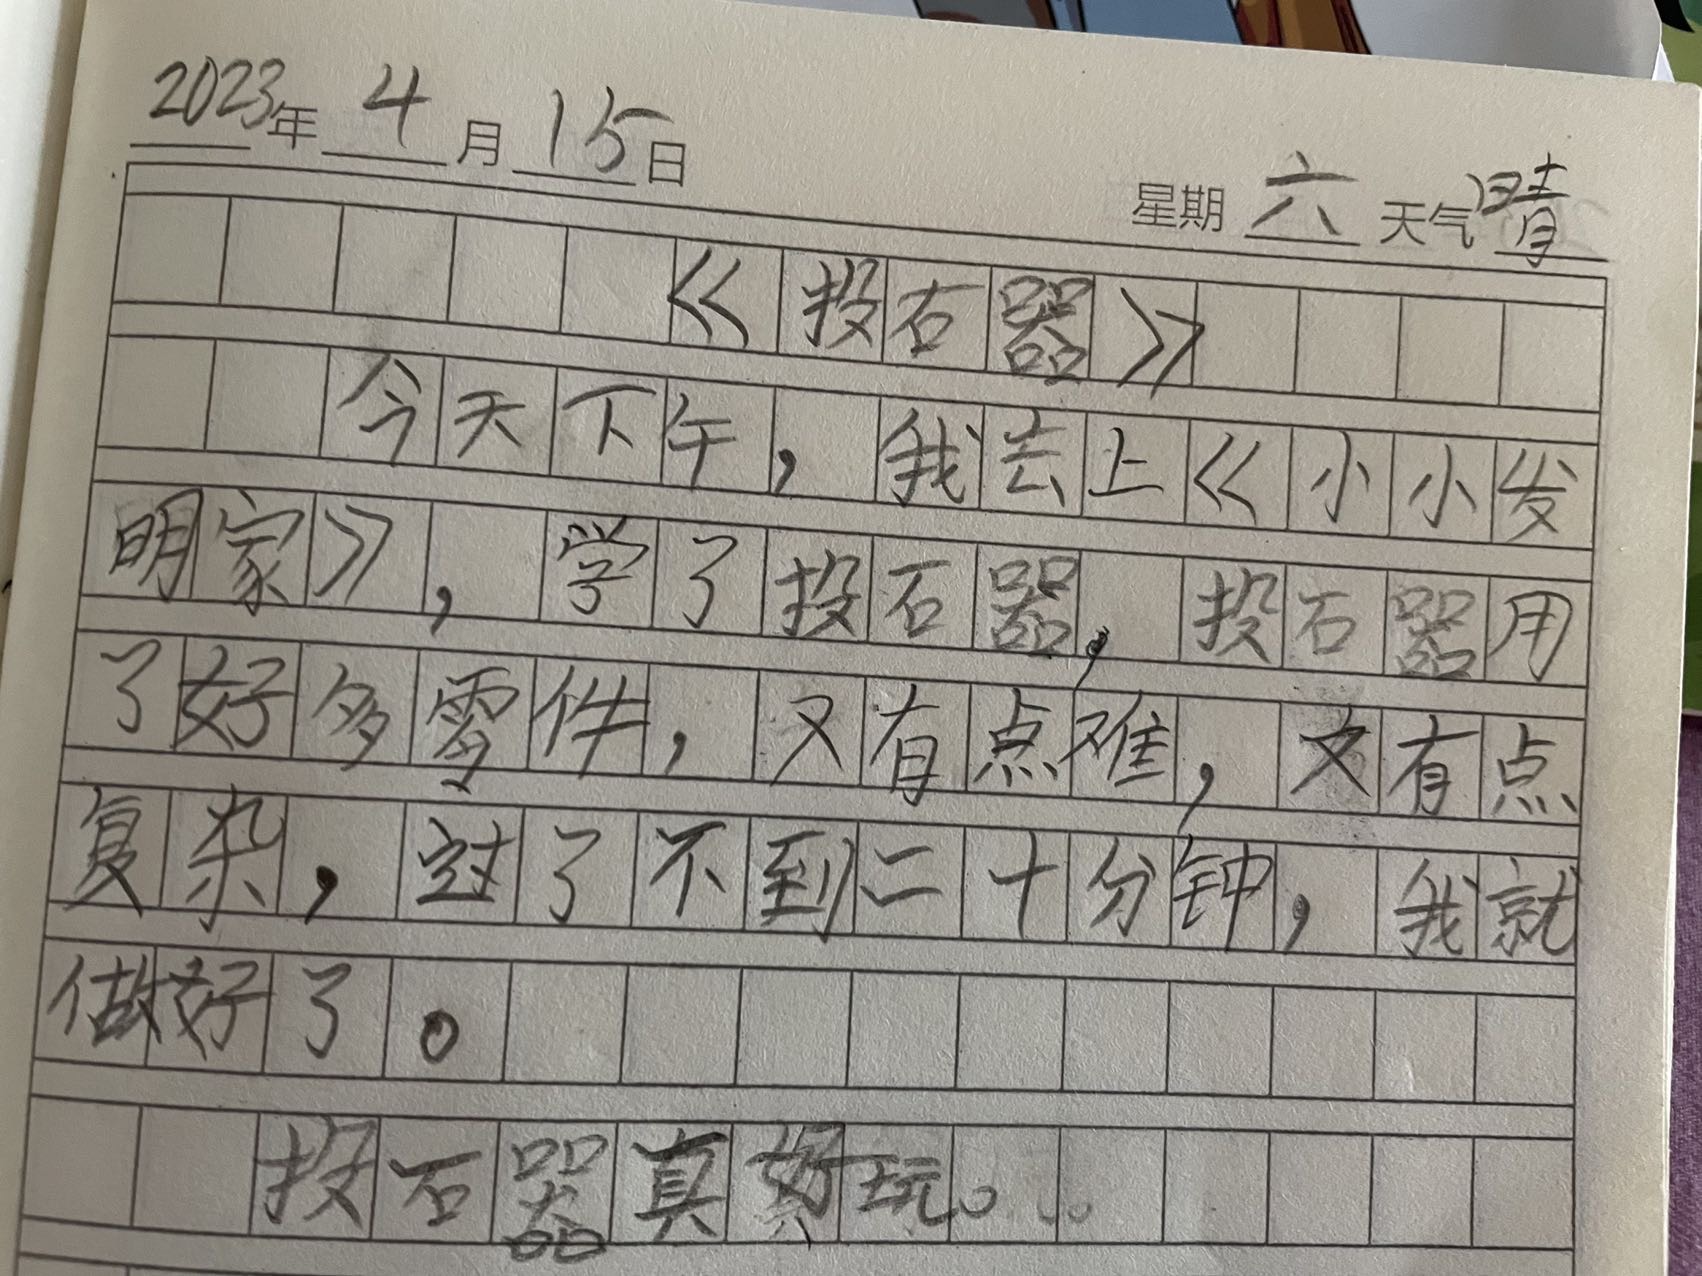 2023年 4月 15日 星期 六 天气 晴
《投石器》
今天下午，我去上《小小发
明家》，学了投石器，投石器用
了好多零件，又有点难，又有点
复杂，过了不到二十分钟，我就
做好了。
投石器真好玩。